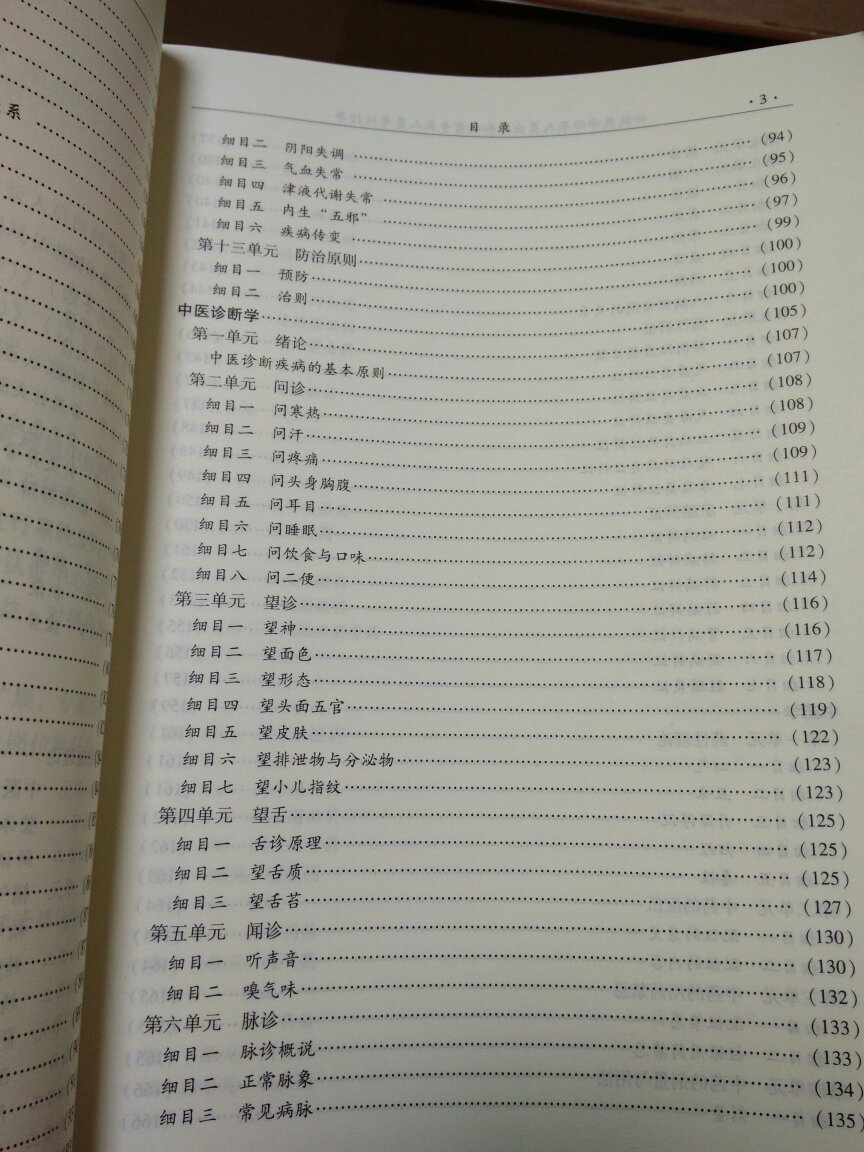 系
·3·
目 录
细目二 阴阳失调 (94)
细目三 气血失常 (95)
细目四 津液代谢失常 (96)
细目五 内生“五邪” (97)
细目六 疾病传变 (99)
第十三单元 防治原则 (100)
细目一 预防 (100)
细目二 治则 (100)
中医诊断学 (105)
第一单元 绪论 (107)
中医诊断疾病的基本原则 (107)
第二单元 问诊 (108)
细目一 问寒热 (108)
细目二 问汗 (109)
细目三 问疼痛 (109)
细目四 问头身胸腹 (111)
细目五 问耳目 (111)
细目六 问睡眠 (112)
细目七 问饮食与口味 (112)
细目八 问二便 (114)
第三单元 望诊 (116)
细目一 望神 (116)
细目二 望面色 (117)
细目三 望形态 (118)
细目四 望头面五官 (119)
细目五 望皮肤 (122)
细目六 望排泄物与分泌物 (123)
细目七 望小儿指纹 (123)
第四单元 望舌 (125)
细目一 舌诊原理 (125)
细目二 望舌质 (125)
细目三 望舌苔 (127)
第五单元 闻诊 (130)
细目一 听声音 (130)
细目二 嗅气味 (132)
第六单元 脉诊 (133)
细目一 脉诊概说 (133)
细目二 正常脉象 (134)
细目三 常见病脉 (135)